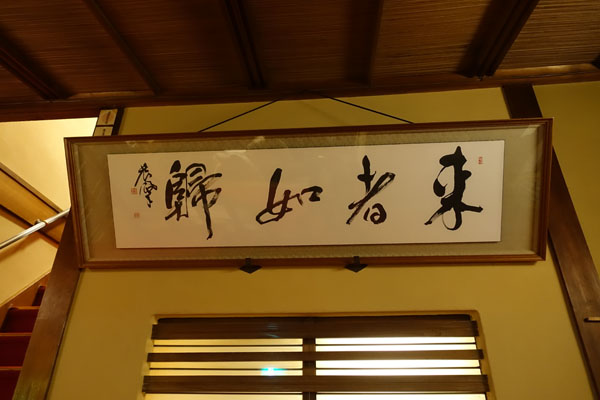 来者如歸